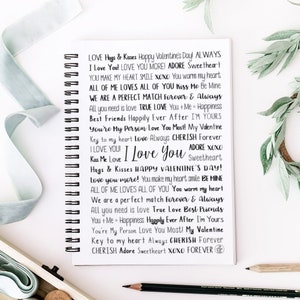 LOVE Hugs & Kisses Happy Valentine's Day! ALWAYS
I Love You! LOVE YOU MORE! ADORE Sweetheart
YOU MAKE MY HEART SMILE XOXO You warm my heart
ALL OF ME LOVES ALL OF YOU Kiss Me Be Mine
WE ARE A PERFECT MATCH Forever & Always
All you need is love TRUE LOVE You + Me = Happiness
Best Friends Happily Ever After I'M YOURS
You're My Person Love You Most! My Valentine
Key to my heart Love Always CHERISH Forever
I LOVE YOU! ADORE XOXO
Kiss Me Love I Love You Sweetheart
Hugs & Kisses HAPPY VALENTINE'S DAY!
Love you more! You make my heart smile BE MINE
ALL OF ME LOVES ALL OF YOU You warm my heart
We are a perfect match Forever & Always
All you need is love True Love Best Friends
You + Me = Happiness Happily Ever After I'm Yours
You're My Person Love You Most! My Valentine
Key to my heart Always CHERISH Forever
CHERISH Adore Sweetheart XOXO FOREVER